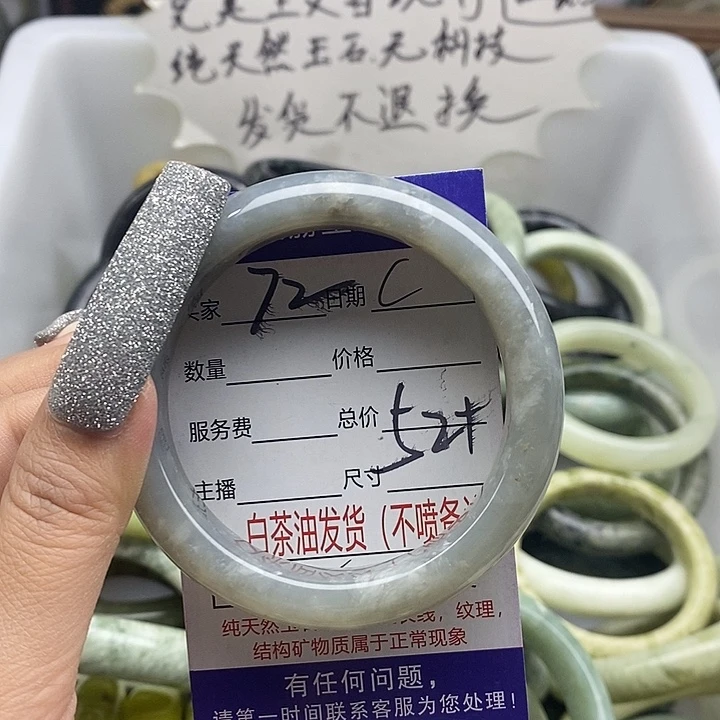 纯天然玉石.无树枝
发货不退换
家 72 日期 C
数量 价格
服务费 总价 52
主播 尺寸
白茶油发货（不喷各
纯天然玉 纹理，
结构矿物质属于正常现象
有任何问题，
请第一时间联系客服为您处理！